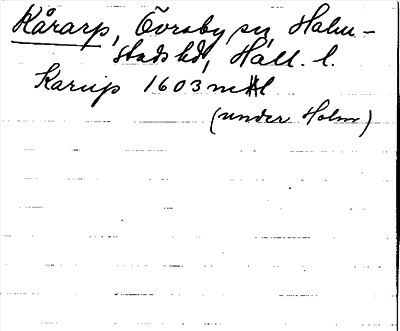 Kårarp, Övraby sn, Halm-
stads hd, Hall. l.
Karup 1603 mHl
(under Holm)